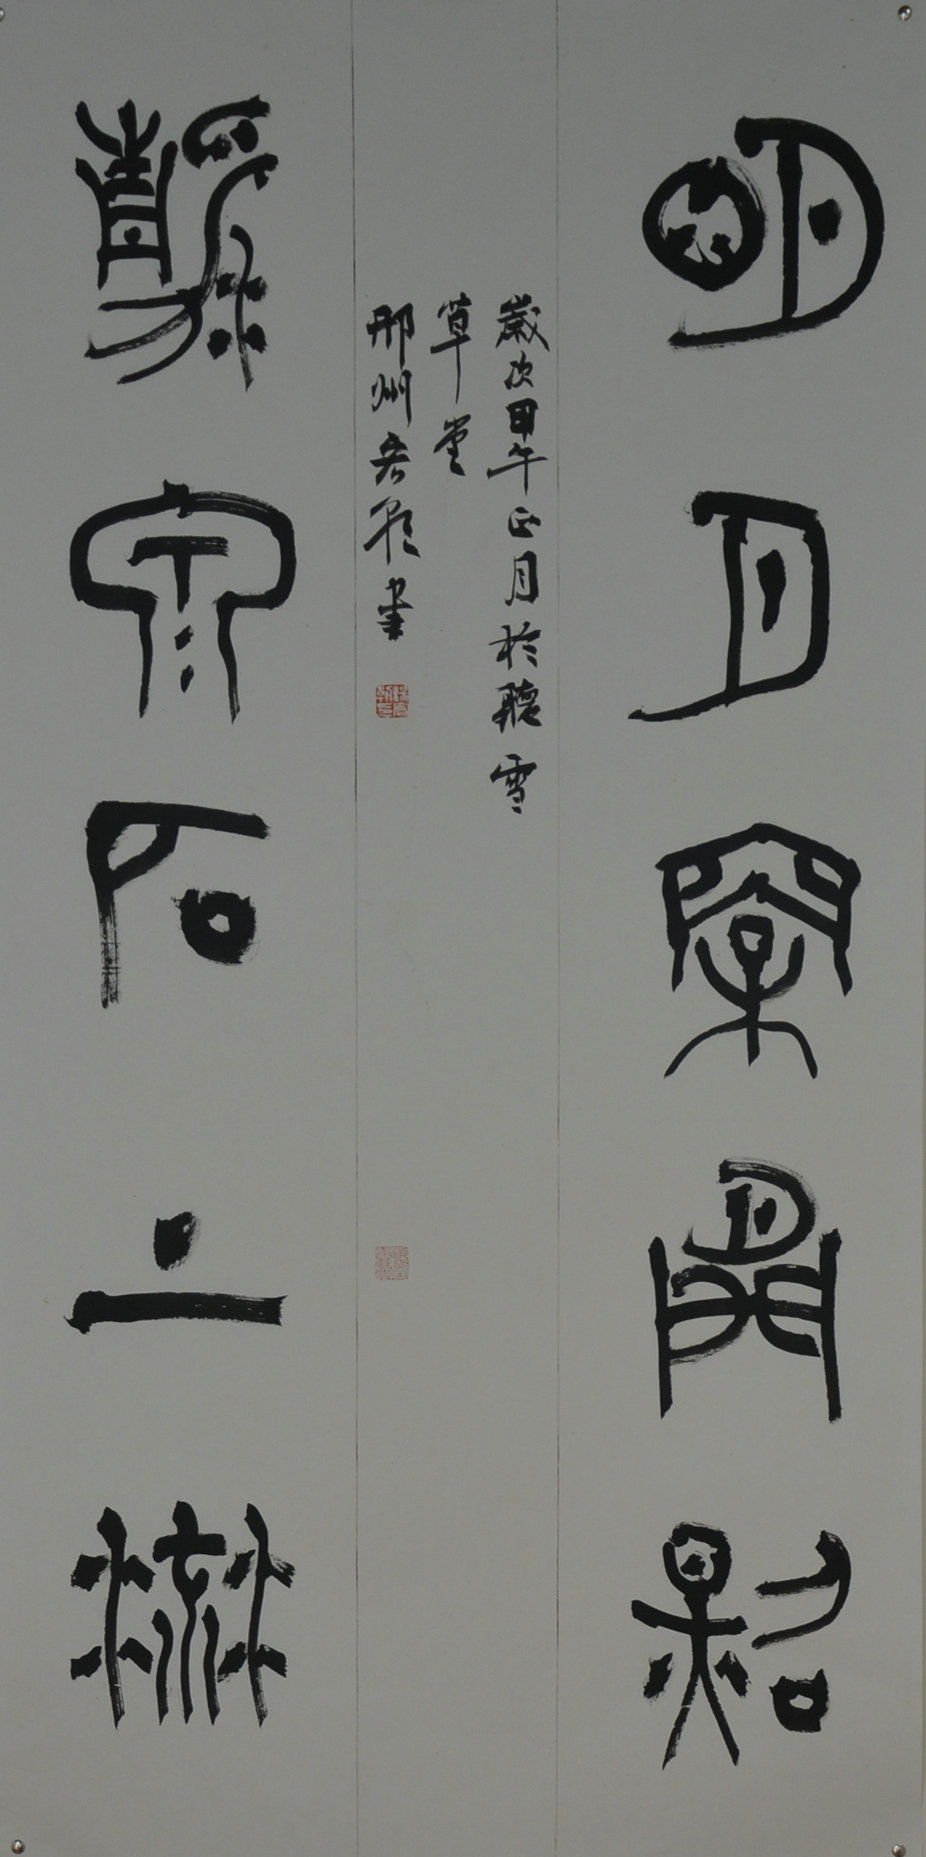 明月松間照
清泉石上流
歲次甲午正月於聽雪
草堂
邢州
書